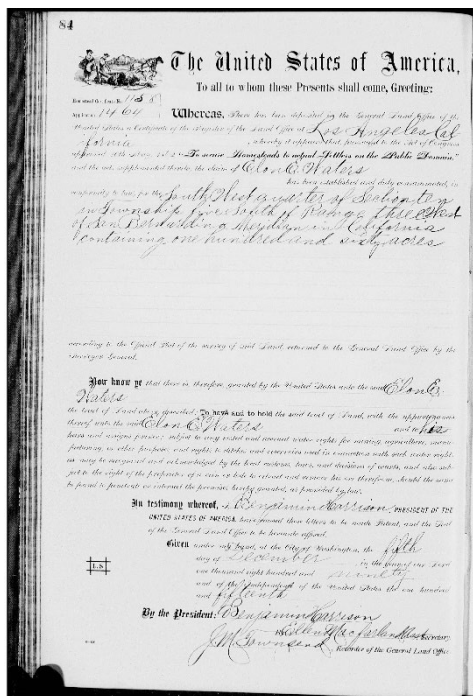 84
The United States of America,
To all to whom these Presents shall come, Greeting:
Homestead Certificate No. 1158
Application 1464
Whereas, There has been deposited in the General Land Office of the
United States a Certificate of the Register of the Land Office at Los Angeles Cal
ifornia, whereby it appears that, pursuant to the Act of Congress
approved 20th May, 1862, "To secure Homesteads to actual Settlers on the Public Domain,"
and the acts supplemental thereto, the claim of Elon E. Waters
has been established and duly consummated, in
conformity to law, for the South West quarter of Section ten
in Township five South of Range three West
of San Bernardino Meridian in California
containing one hundred and sixty acres
according to the Official Plat of the survey of said Land, returned to the General Land Office by the
Surveyor General.
Now know ye that there is therefore, granted by the United States unto the said Elon E.
Waters
the tract of Land above described: To have and to hold the said tract of Land, with the appurtenances
thereof, unto the said Elon E. Waters and to his
heirs and assigns forever; subject to any vested and accrued water rights for mining, agricultural, manu-
facturing, or other purposes, and rights to ditches and reservoirs used in connection with such water rights,
as may be recognized and acknowledged by the local customs, laws, and decisions of courts, and also sub-
ject to the right of the proprietor of a vein or lode to extract and remove his ore therefrom, should the same
be found to penetrate or intersect the premises hereby granted, as provided by law.
In testimony whereof, I, Benjamin Harrison, PRESIDENT OF THE
UNITED STATES OF AMERICA, have caused these letters to be made Patent, and the Seal
of the General Land Office to be hereunto affixed.
Given under my hand, at the City of Washington, the fifth
day of December, in the year of our Lord
one thousand eight hundred and ninety, and
of the Independence of the United States the one hundred
and fifteenth
L.S
By the President: Benjamin Harrison
By Ellen Macfarland, Secretary.
J. M. Townsend, Recorder of the General Land Office.